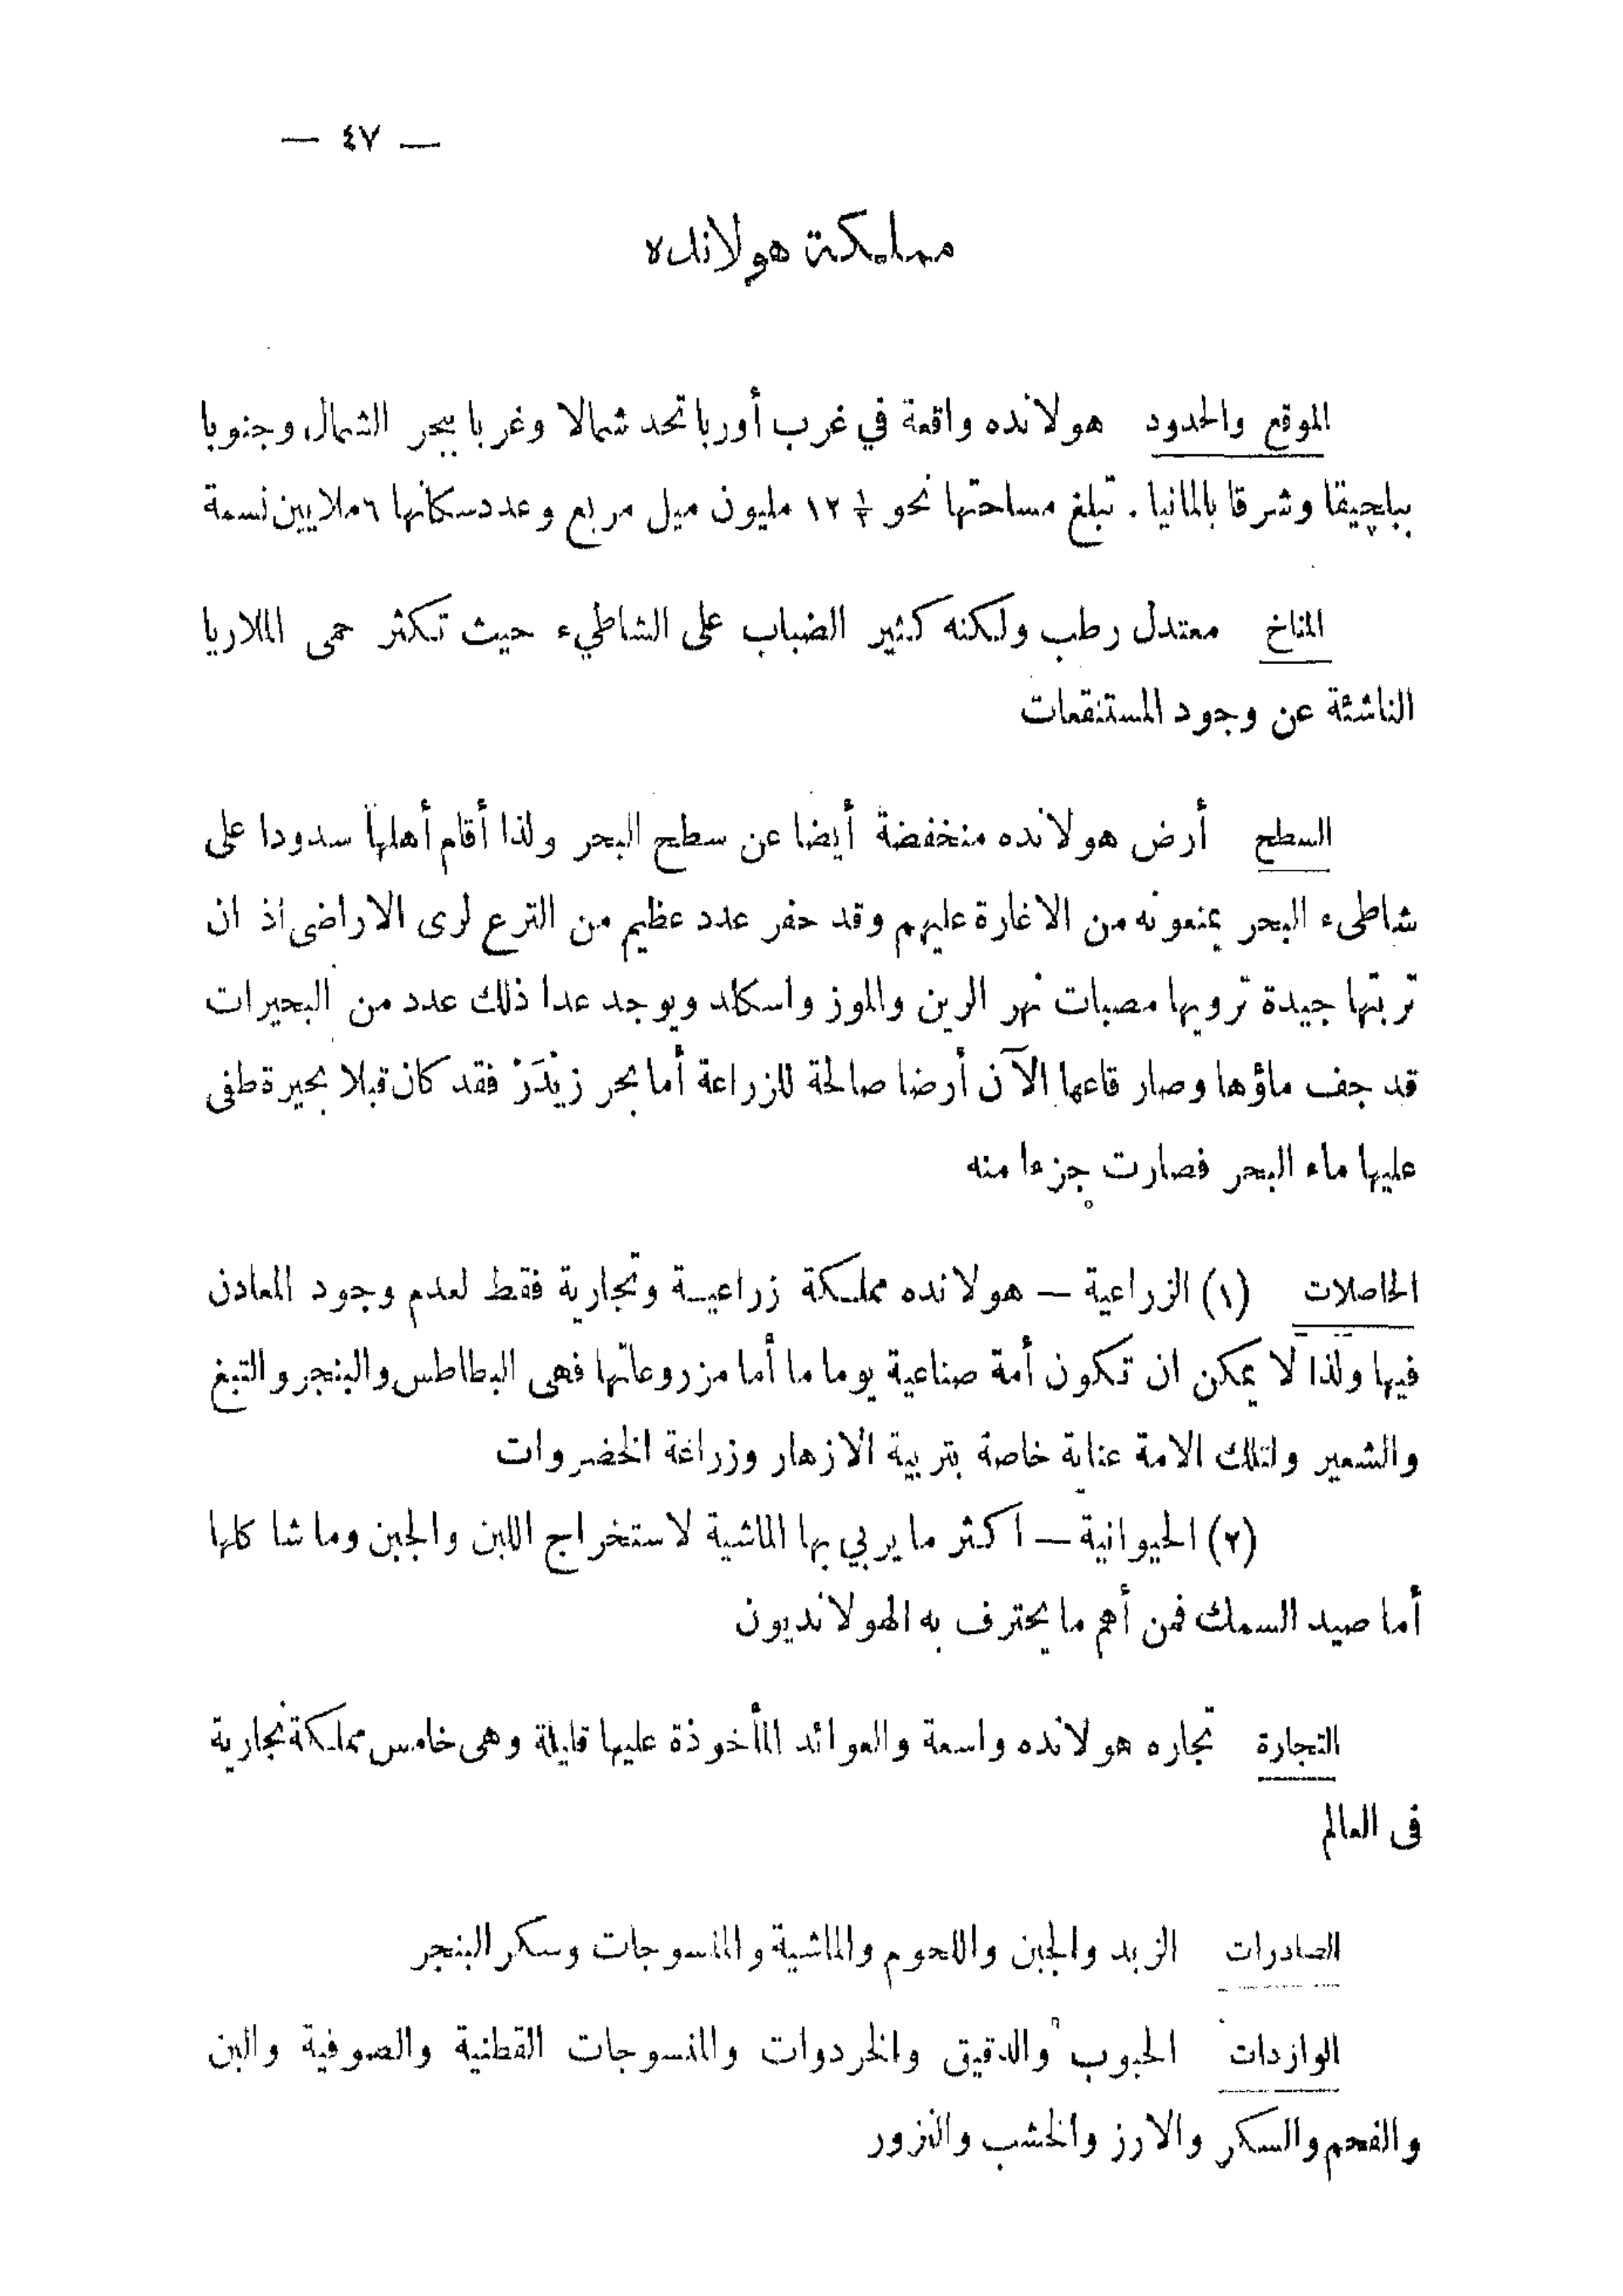 — ٤٧ —
مملكة هولانده
الموقع والحدود هولانده واقعة في غرب أوربا تحد شمالا وغربا ببحر الشمال وجنوبا
ببلچيقا وشرقا بالمانيا . تبلغ مساحتها نحو ١٢ ½ مليون ميل مربع وعدد سكانها ٦ ملايين نسمة
المناخ معتدل رطب ولكنه كثير الضباب على الشاطيء حيث تكثر حمى الملاريا
الناشئة عن وجود المستنقعات
السطح أرض هولانده منخفضة أيضا عن سطح البحر ولذا أقام أهلها سدودا على
شاطىء البحر يمنعونه من الاغارة عليهم وقد حفر عدد عظيم من الترع لرى الاراضى اذ ان
تربتها جيدة ترويها مصبات نهر الرين والموز واسكلد ويوجد عدا ذلك عدد من البحيرات
قد جف ماؤها وصار قاعها الآن أرضا صالحة للزراعة أما بحر زيْدَرْ فقد كان قبلا بحيرة طفى
عليها ماء البحر فصارت جزءا منه
الحاصلات (١) الزراعية — هولانده مملكة زراعية وتجارية فقط لعدم وجود المعادن
فيها ولذا لا يمكن ان تكون أمة صناعية يوما ما أما مزروعاتها فهى البطاطس والبنجر والتبغ
والشعير ولتلك الامة عناية خاصة بتربية الازهار وزراعة الخضروات
(٢) الحيوانية — اكثر ما يربي بها الماشية لاستخراج اللبن والجبن وما شا كلها
أما صيد السمك فمن أهم ما يحترف به الهولانديون
التجارة تجاره هولانده واسعة والعوائد المأخوذة عليها قليلة وهى خامس مملكة تجارية
فى العالم
الصادرات الزبد والجبن واللحوم والماشية والمنسوجات وسكر البنجر
الواردات الحبوب والدقيق والخردوات والمنسوجات القطنية والصوفية والبن
والفحم والسكر والارز والخشب والبزور